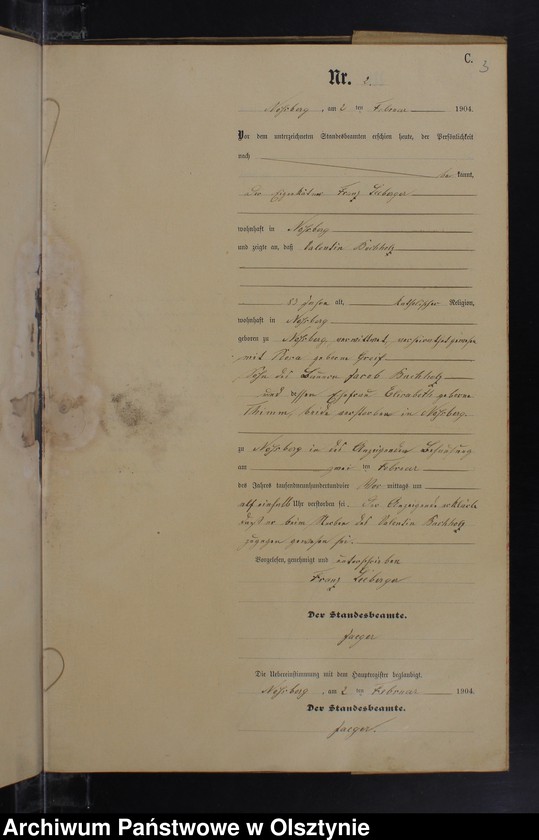 C.
3
Nr. 2.
Nossberg, am 2 ten Februar 1904.
Vor dem unterzeichneten Standesbeamten erschien heute, der Persönlichkeit
nach
be kannt,
der Eigenkätner Franz Seeberger
wohnhaft in Nossberg
und zeigte an, daß Valentin Buchholz
83 Jahre alt, katholischer Religion,
wohnhaft in Nossberg
geboren zu Nossberg verwittwet, verheirathet gewesen
mit geborne Greif
Sohn des Bauern Jacob Buchholz
und dessen Ehefrau Elisabeth geborne
Thimm, beide verstorben in Nossberg
zu Nossberg in des Anzeigenden Behausung
am zwei ten Februar
des Jahres tausendneunhundertundvier Vor mittags um
elf einhalb Uhr verstorben sei. Der Anzeigende erklärte
daß er beim Sterben des Valentin Buchholz
zugegen gewesen sei.
Vorgelesen, genehmigt und unterschrieben
Franz Seeberger
Der Standesbeamte.
Jaeger
Die Uebereinstimmung mit dem Hauptregister beglaubigt.
Nossberg, am 2 ten Februar 1904.
Der Standesbeamte.
Jaeger.
Archiwum Państwowe w Olsztynie